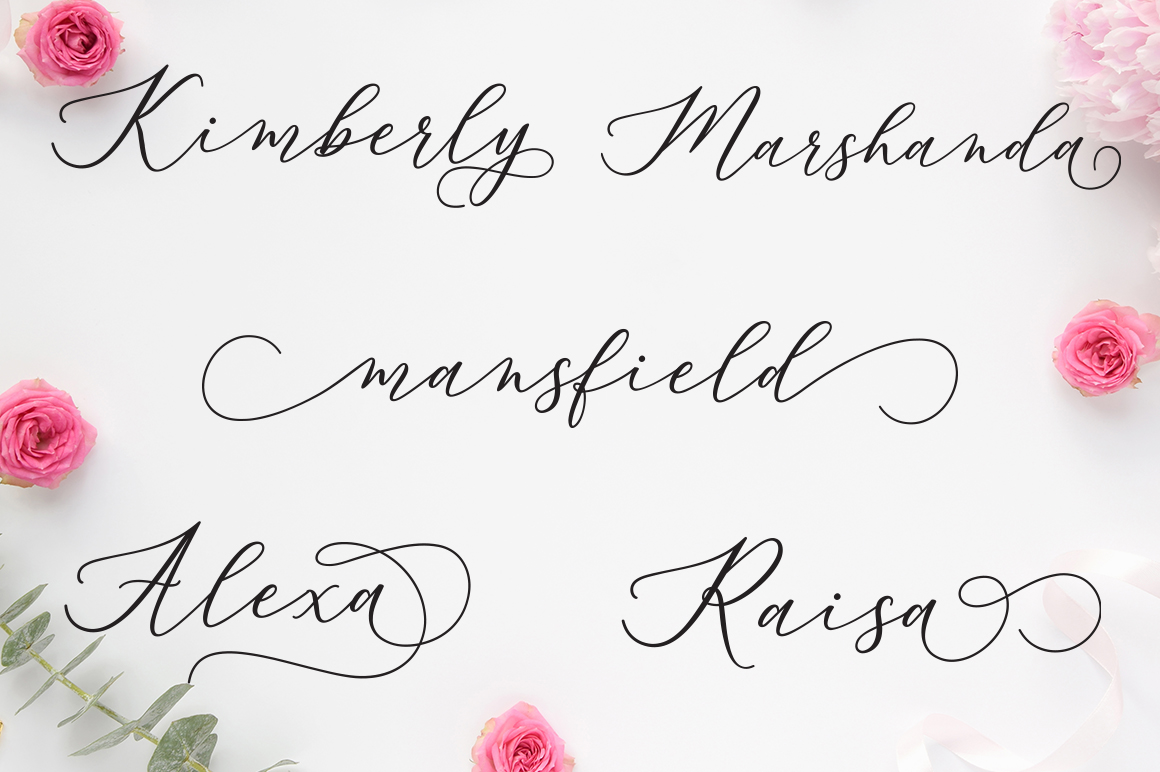 Kimberly Marshanda
mansfield
Alexa Raisa